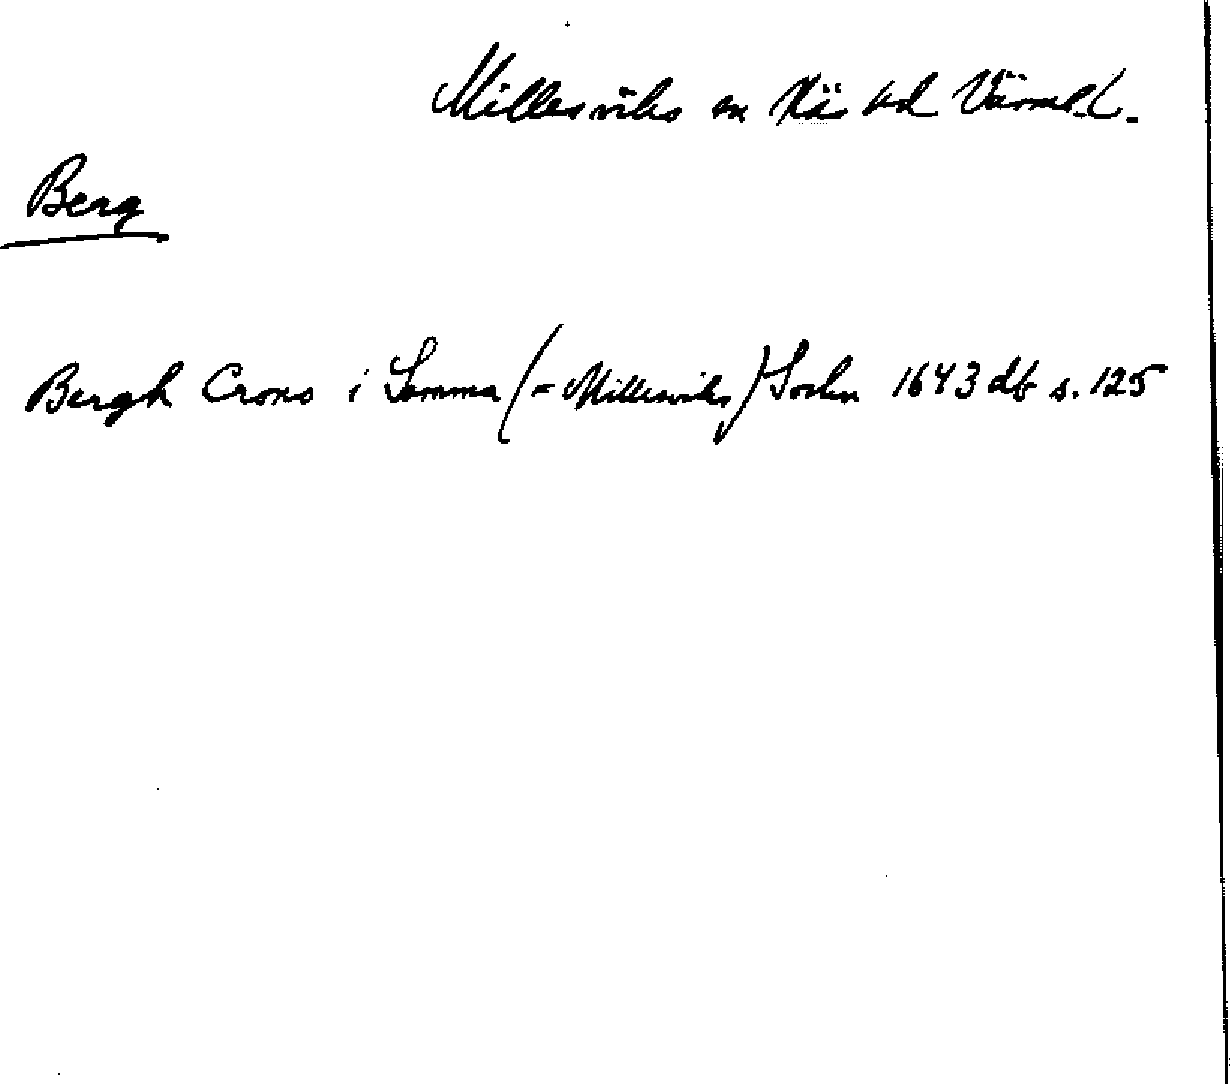 Millesviks sn Näs hd Värml.
Berg
Bergh Crono i Samma (= Millesviks) Sochn 1643 db s. 125